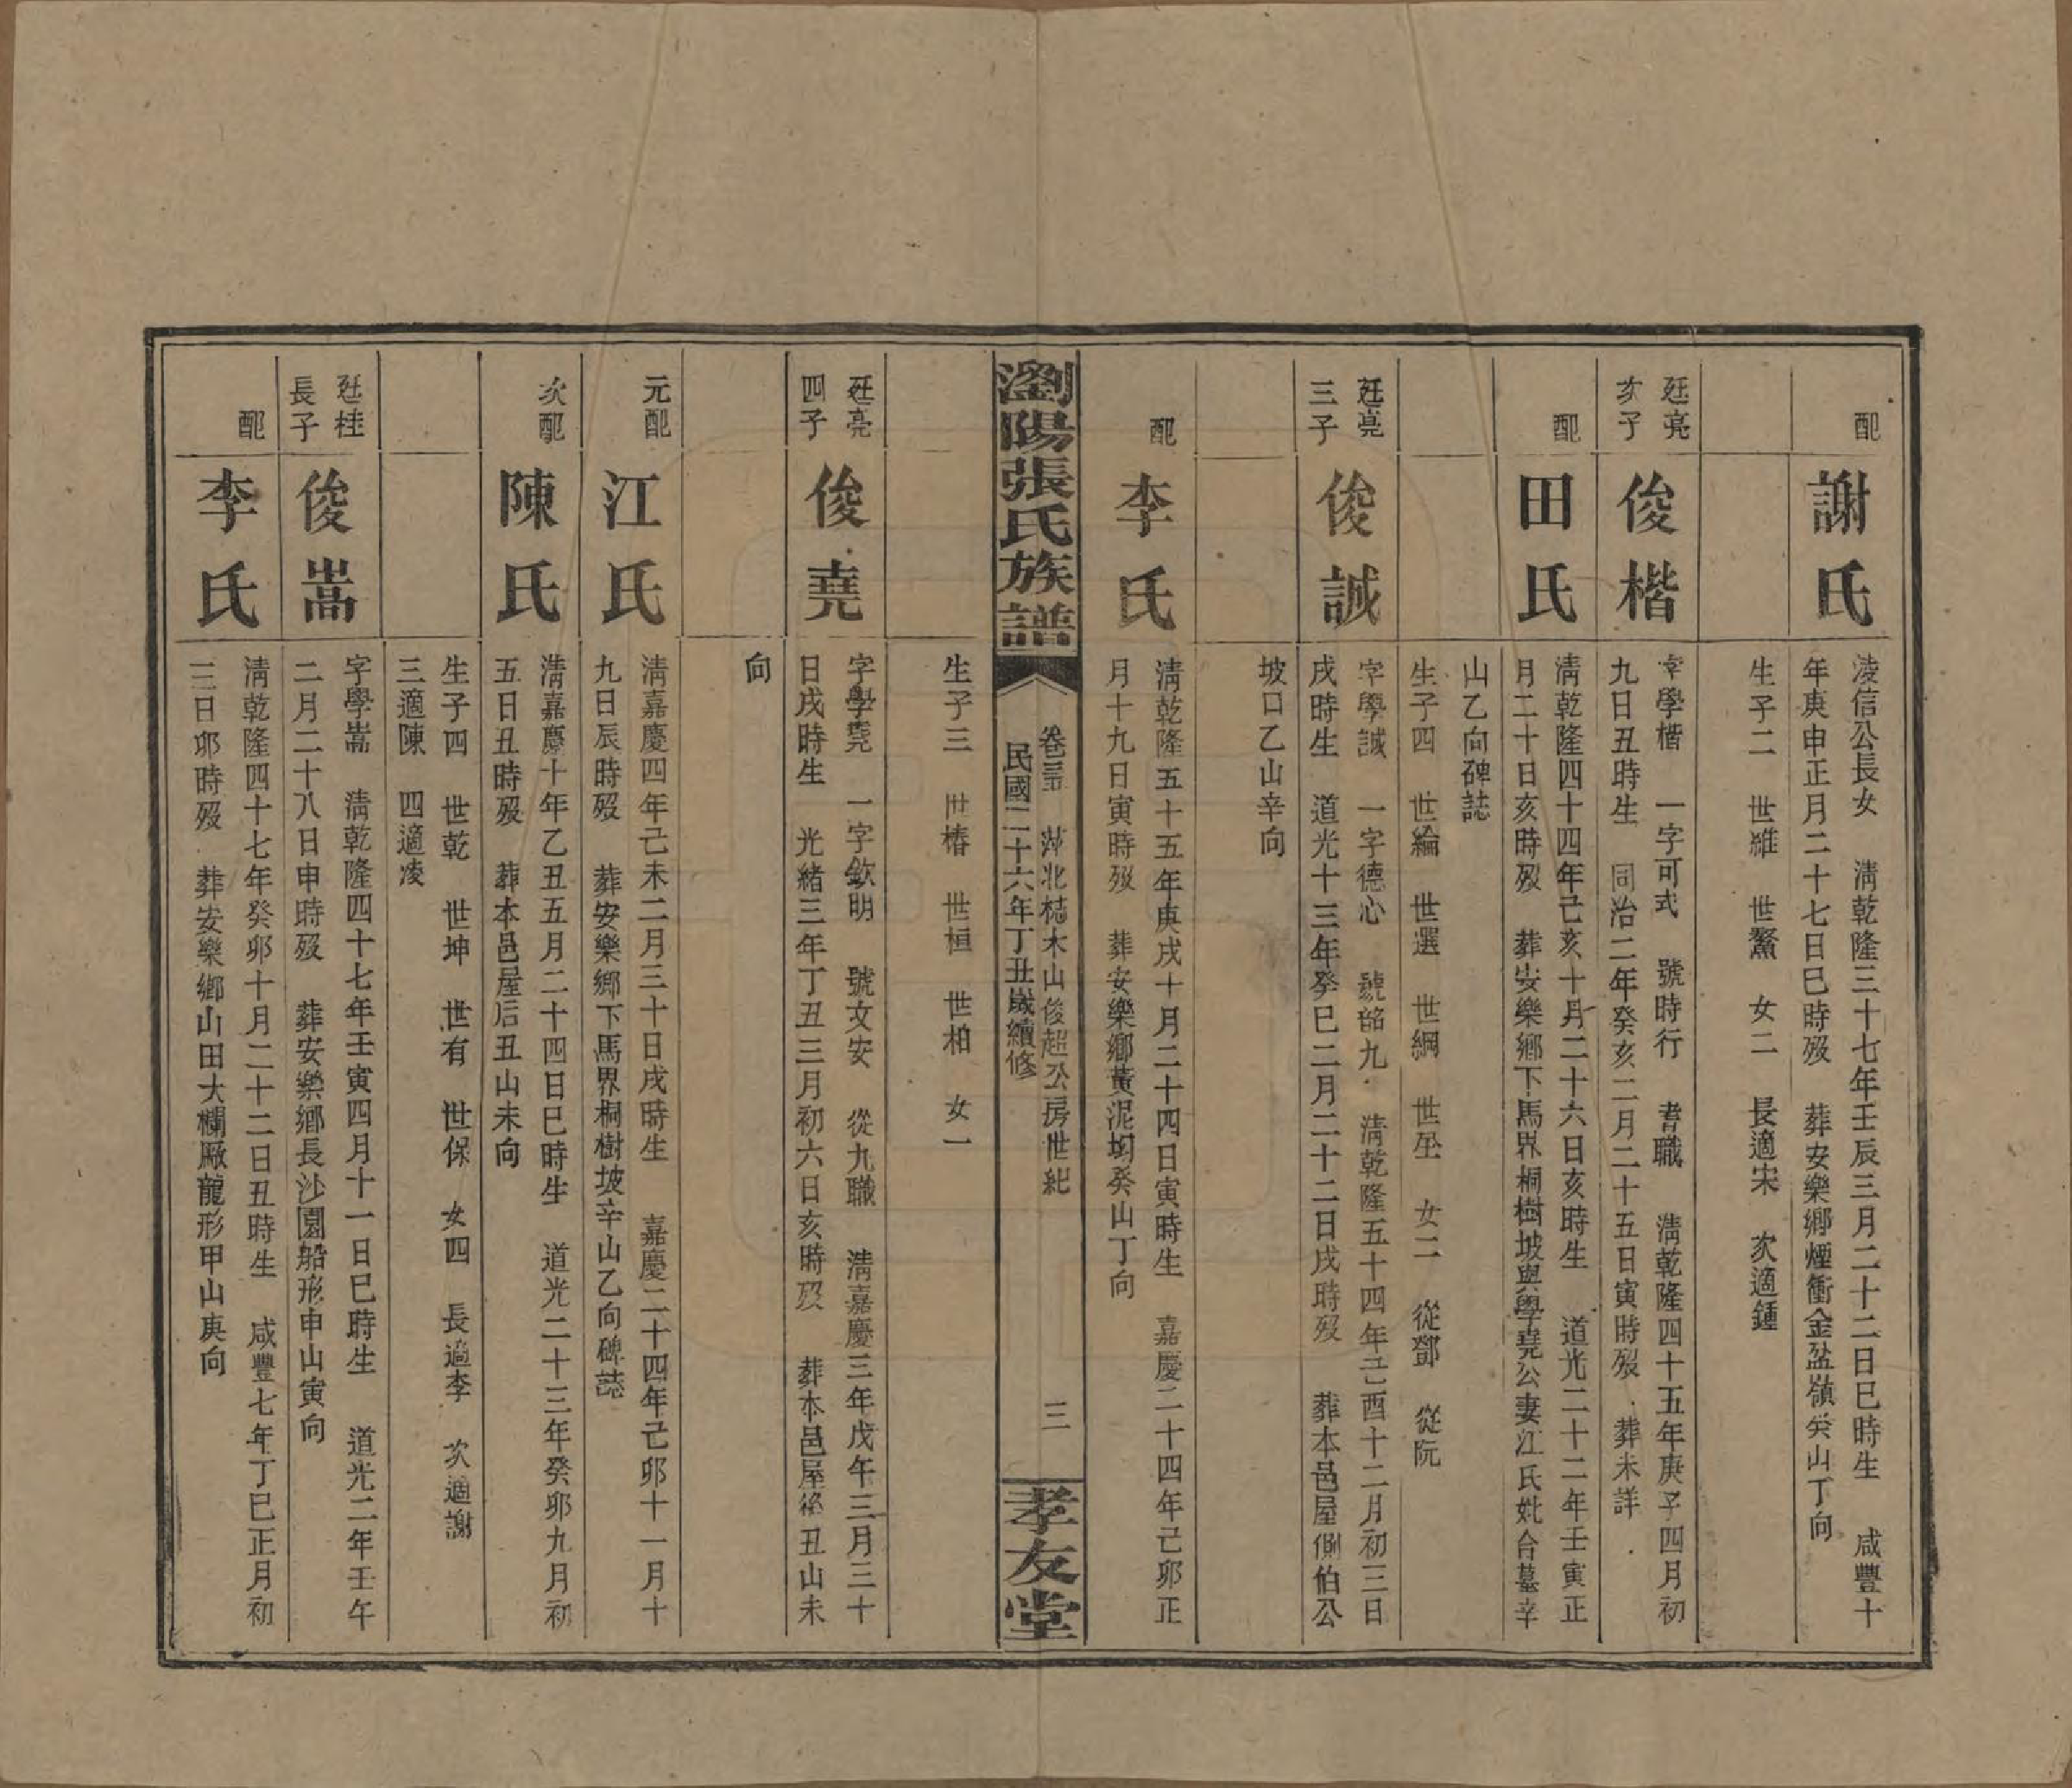 配
謝氏
淩信公長女　清乾隆三十七年壬辰三月二十二日巳時生　咸豐十
年庚申正月二十七日巳時歿　葬安樂鄉煙衝金盆嶺癸山丁向
生子二　世維　世鰲　女二　長適宋　次適鍾
廷亮
次子
俊楷
字學楷　一字可式　號時行　耆職　清乾隆四十五年庚子四月初
九日丑時生　同治二年癸亥二月二十五日寅時歿　葬未詳
配
田氏
清乾隆四十四年己亥十月二十六日亥時生　道光二十二年壬寅正
月二十日亥時歿　葬安樂鄉下馬界桐樹坡與學堯公妻江氏妣合墓辛
山乙向碑誌
生子四　世綸　世選　世綱　世坒　女二　從鄧　從阮
廷亮
三子
俊誠
字學誠　一字德心　號韶九　清乾隆五十四年己酉十二月初三日
戌時生　道光十三年癸巳二月二十二日戌時歿　葬本邑屋側伯公
坡口乙山辛向
配
李氏
清乾隆五十五年庚戌十月二十四日寅時生　嘉慶二十四年己卯正
月十九日寅時歿　葬安樂鄉黃泥坳癸山丁向
瀏陽張氏族譜
卷三　萍北櫧木山俊超公房世紀　三
民國二十六年丁丑歲續修
孝友堂
生子三　世椿　世恒　世柏　女一
廷亮
四子
俊堯
字學堯　一字欽明　號文安　從九職　清嘉慶三年戊午三月三十
日戌時生　光緒三年丁丑三月初六日亥時歿　葬本邑屋後丑山未
向
元配
江氏
清嘉慶四年己未二月三十日戌時生　嘉慶二十四年己卯十一月十
九日辰時歿　葬安樂鄉下馬界桐樹坡辛山乙向碑誌
次配
陳氏
清嘉慶十年乙丑五月二十四日巳時生　道光二十三年癸卯九月初
五日丑時歿　葬本邑屋后丑山未向
生子四　世乾　世坤　世有　世保　女四　長適李　次適謝
三適陳　四適凌
廷桂
長子
俊嵩
字學嵩　清乾隆四十七年壬寅四月十一日巳時生　道光二年壬午
二月二十八日申時歿　葬安樂鄉長沙園船形申山寅向
配
李氏
清乾隆四十七年癸卯十月二十二日丑時生　咸豐七年丁巳正月初
三日卯時歿　葬安樂鄉山田大欄廠龍形甲山庚向